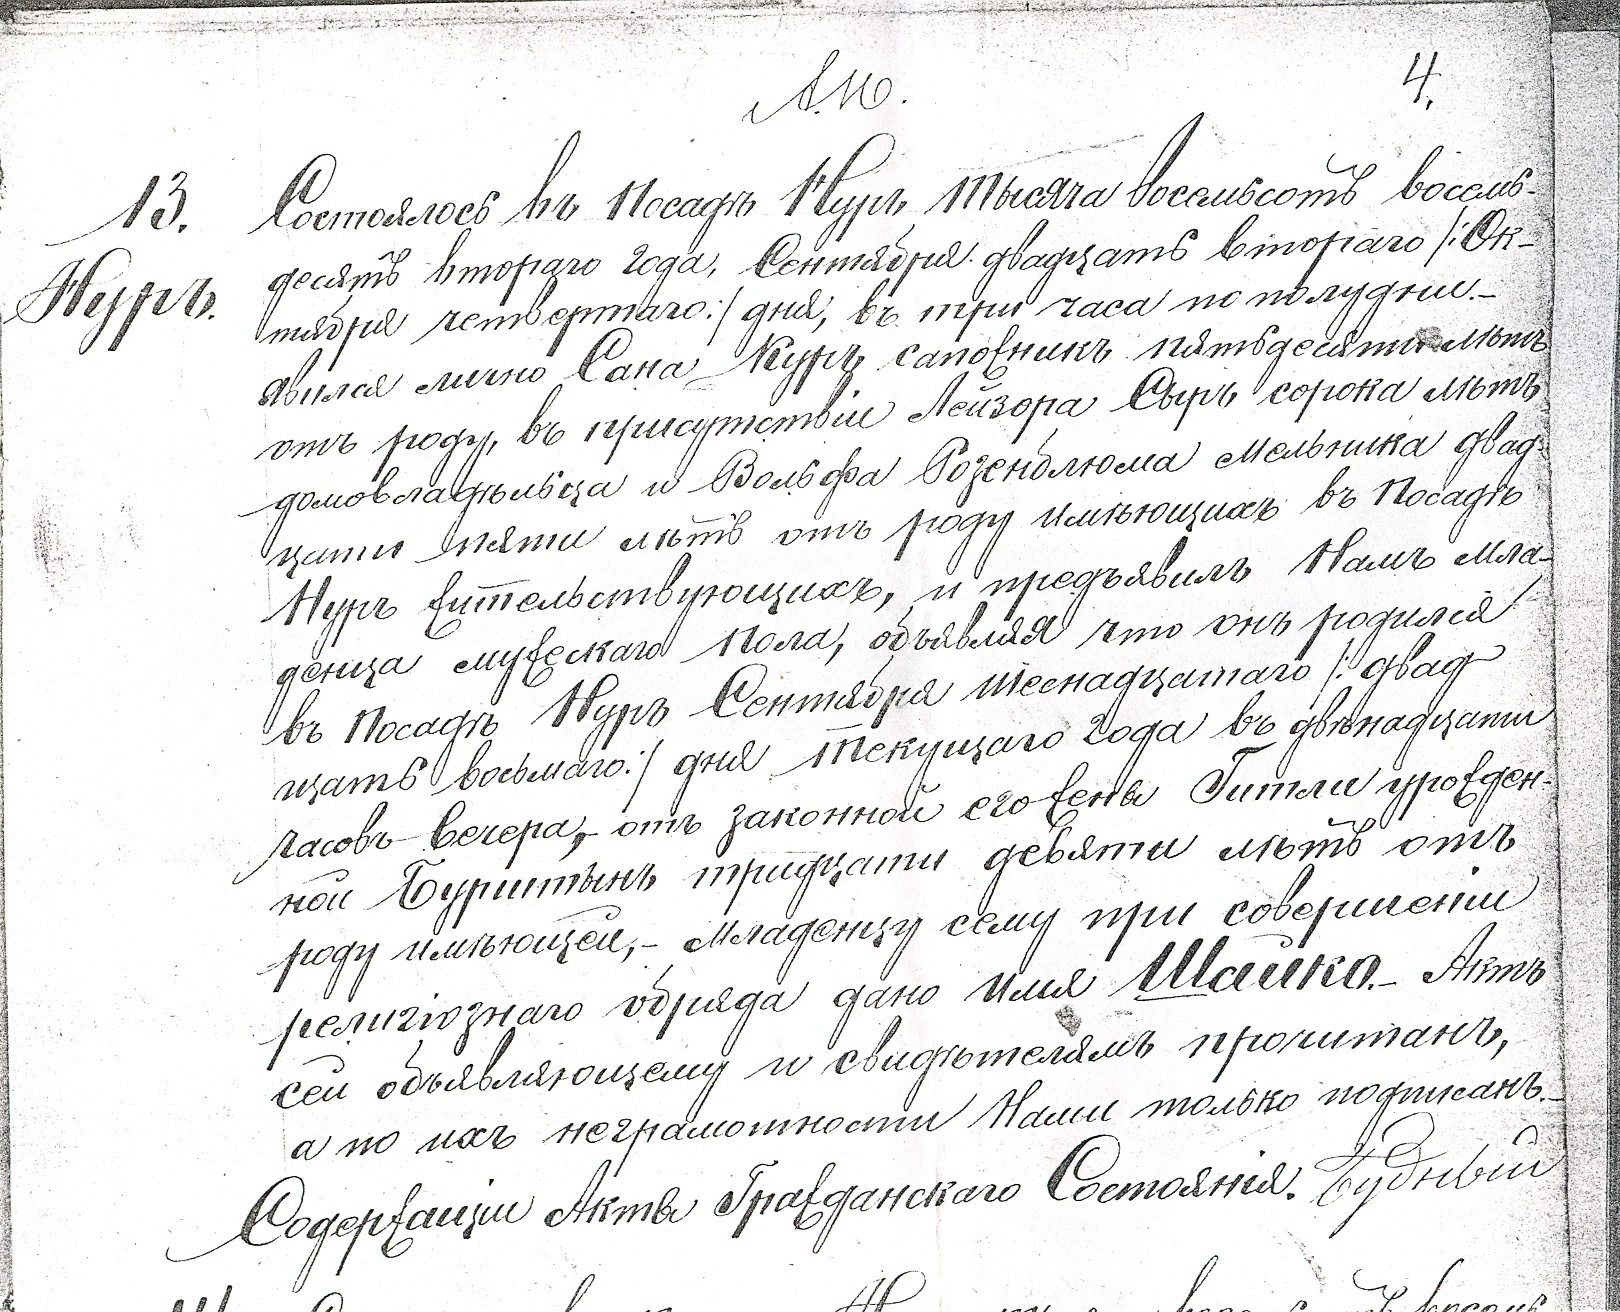 А.М.
4.
13.
Нуръ.
Состоялось въ Посадѣ Нуръ, тысяча восемьсотъ восемь-
десятъ втораго года, Сентября двадцать втораго /: Ок-
тября четвертаго :/ дня, въ три часа по полудни.-
явился лично Сана Куръ, сапожникъ пятьдесяти лѣтъ
отъ роду, въ присутствіи Лейзора Сыръ сорока лѣтъ
домовладѣльца и Вольфа Розенблюма мельника двад-
цати пяти лѣтъ отъ роду имѣющихъ въ Посадѣ
Нуръ жительствующихъ, и предъявилъ Намъ мла-
денца мужескаго пола, объявляя что онъ родился
въ Посадѣ Нуръ Сентября шеснадцатаго /: двад
цать восьмаго :/ дня текущаго года въ двѣнадцати
часовъ вечера, - отъ законной его жены Гитли урожден-
ной Бурштынъ тридцати девяти лѣтъ отъ
роду имѣющей, - Младенцу сему при совершеніи
религіознаго обряда дано имя Шайко. - Актъ
сей объявляющему и свидѣтелямъ прочитанъ,
а по ихъ неграмотности Нами только подписанъ. -
Содержащій Акты Гражданскаго Состоянія. Будный